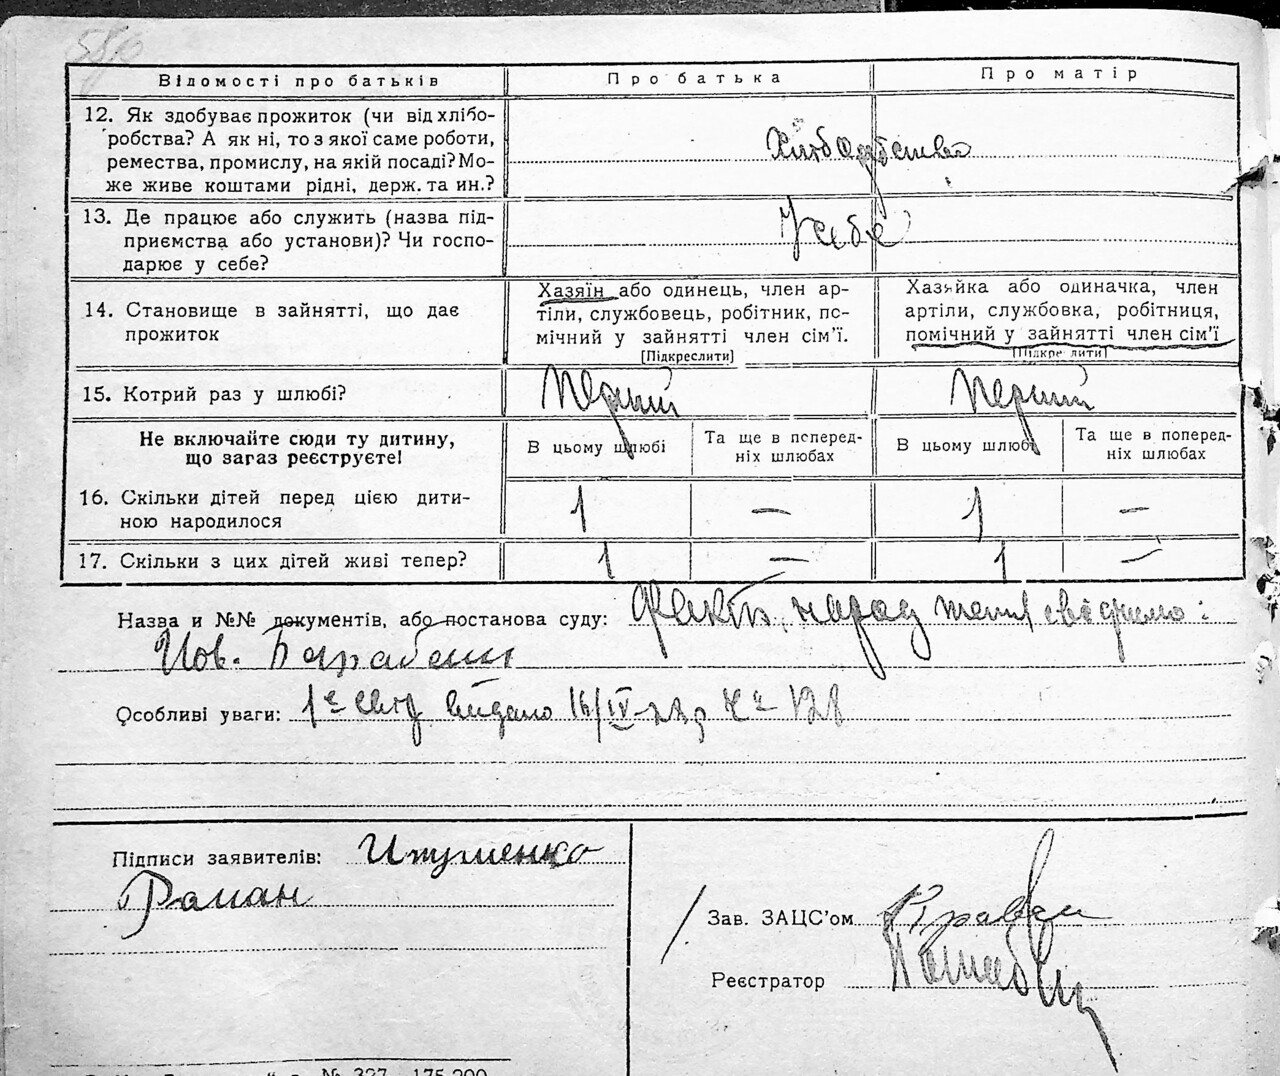 550
Відомості про батьків Про батька Про матір
12. Як здобуває прожиток (чи від хлібо-
робства? А як ні, то з якої саме роботи,
ремества, промислу, на якій посаді? Мо-
же живе коштами рідні, держ. та ин.?
Хліборобство
13. Де працює або служить (назва під-
приємства або установи)? Чи госпо-
дарює у себе?
У себе
14. Становище в зайнятті, що дає
прожиток
Хазяїн або одинець, член ар-
тіли, службовець, робітник, по-
мічний у зайнятті член сім'ї.
[Підкреслити]
Хазяйка або одиначка, член
артіли, службовка, робітниця,
помічний у зайнятті член сім'ї
[Підкреслити]
15. Котрий раз у шлюбі? Перший Перший
Не включайте сюди ту дитину,
що загаз реєструєте!
В цьому шлюбі
Та ще в поперед-
ніх шлюбах
В цьому шлюбі
Та ще в поперед-
ніх шлюбах
16. Скільки дітей перед цією дити-
ною народилося
1 — 1 —
17. Скільки з цих дітей живі тепер? 1 — 1 —
Назва и №№ документів, або постанова суду: Факт народження свідчимо:
Особливі уваги: видано 16/IV № 128
Підписи заявителів:
Роман
Зав. ЗАЦС'ом
Реєстратор
№ 327 175.200